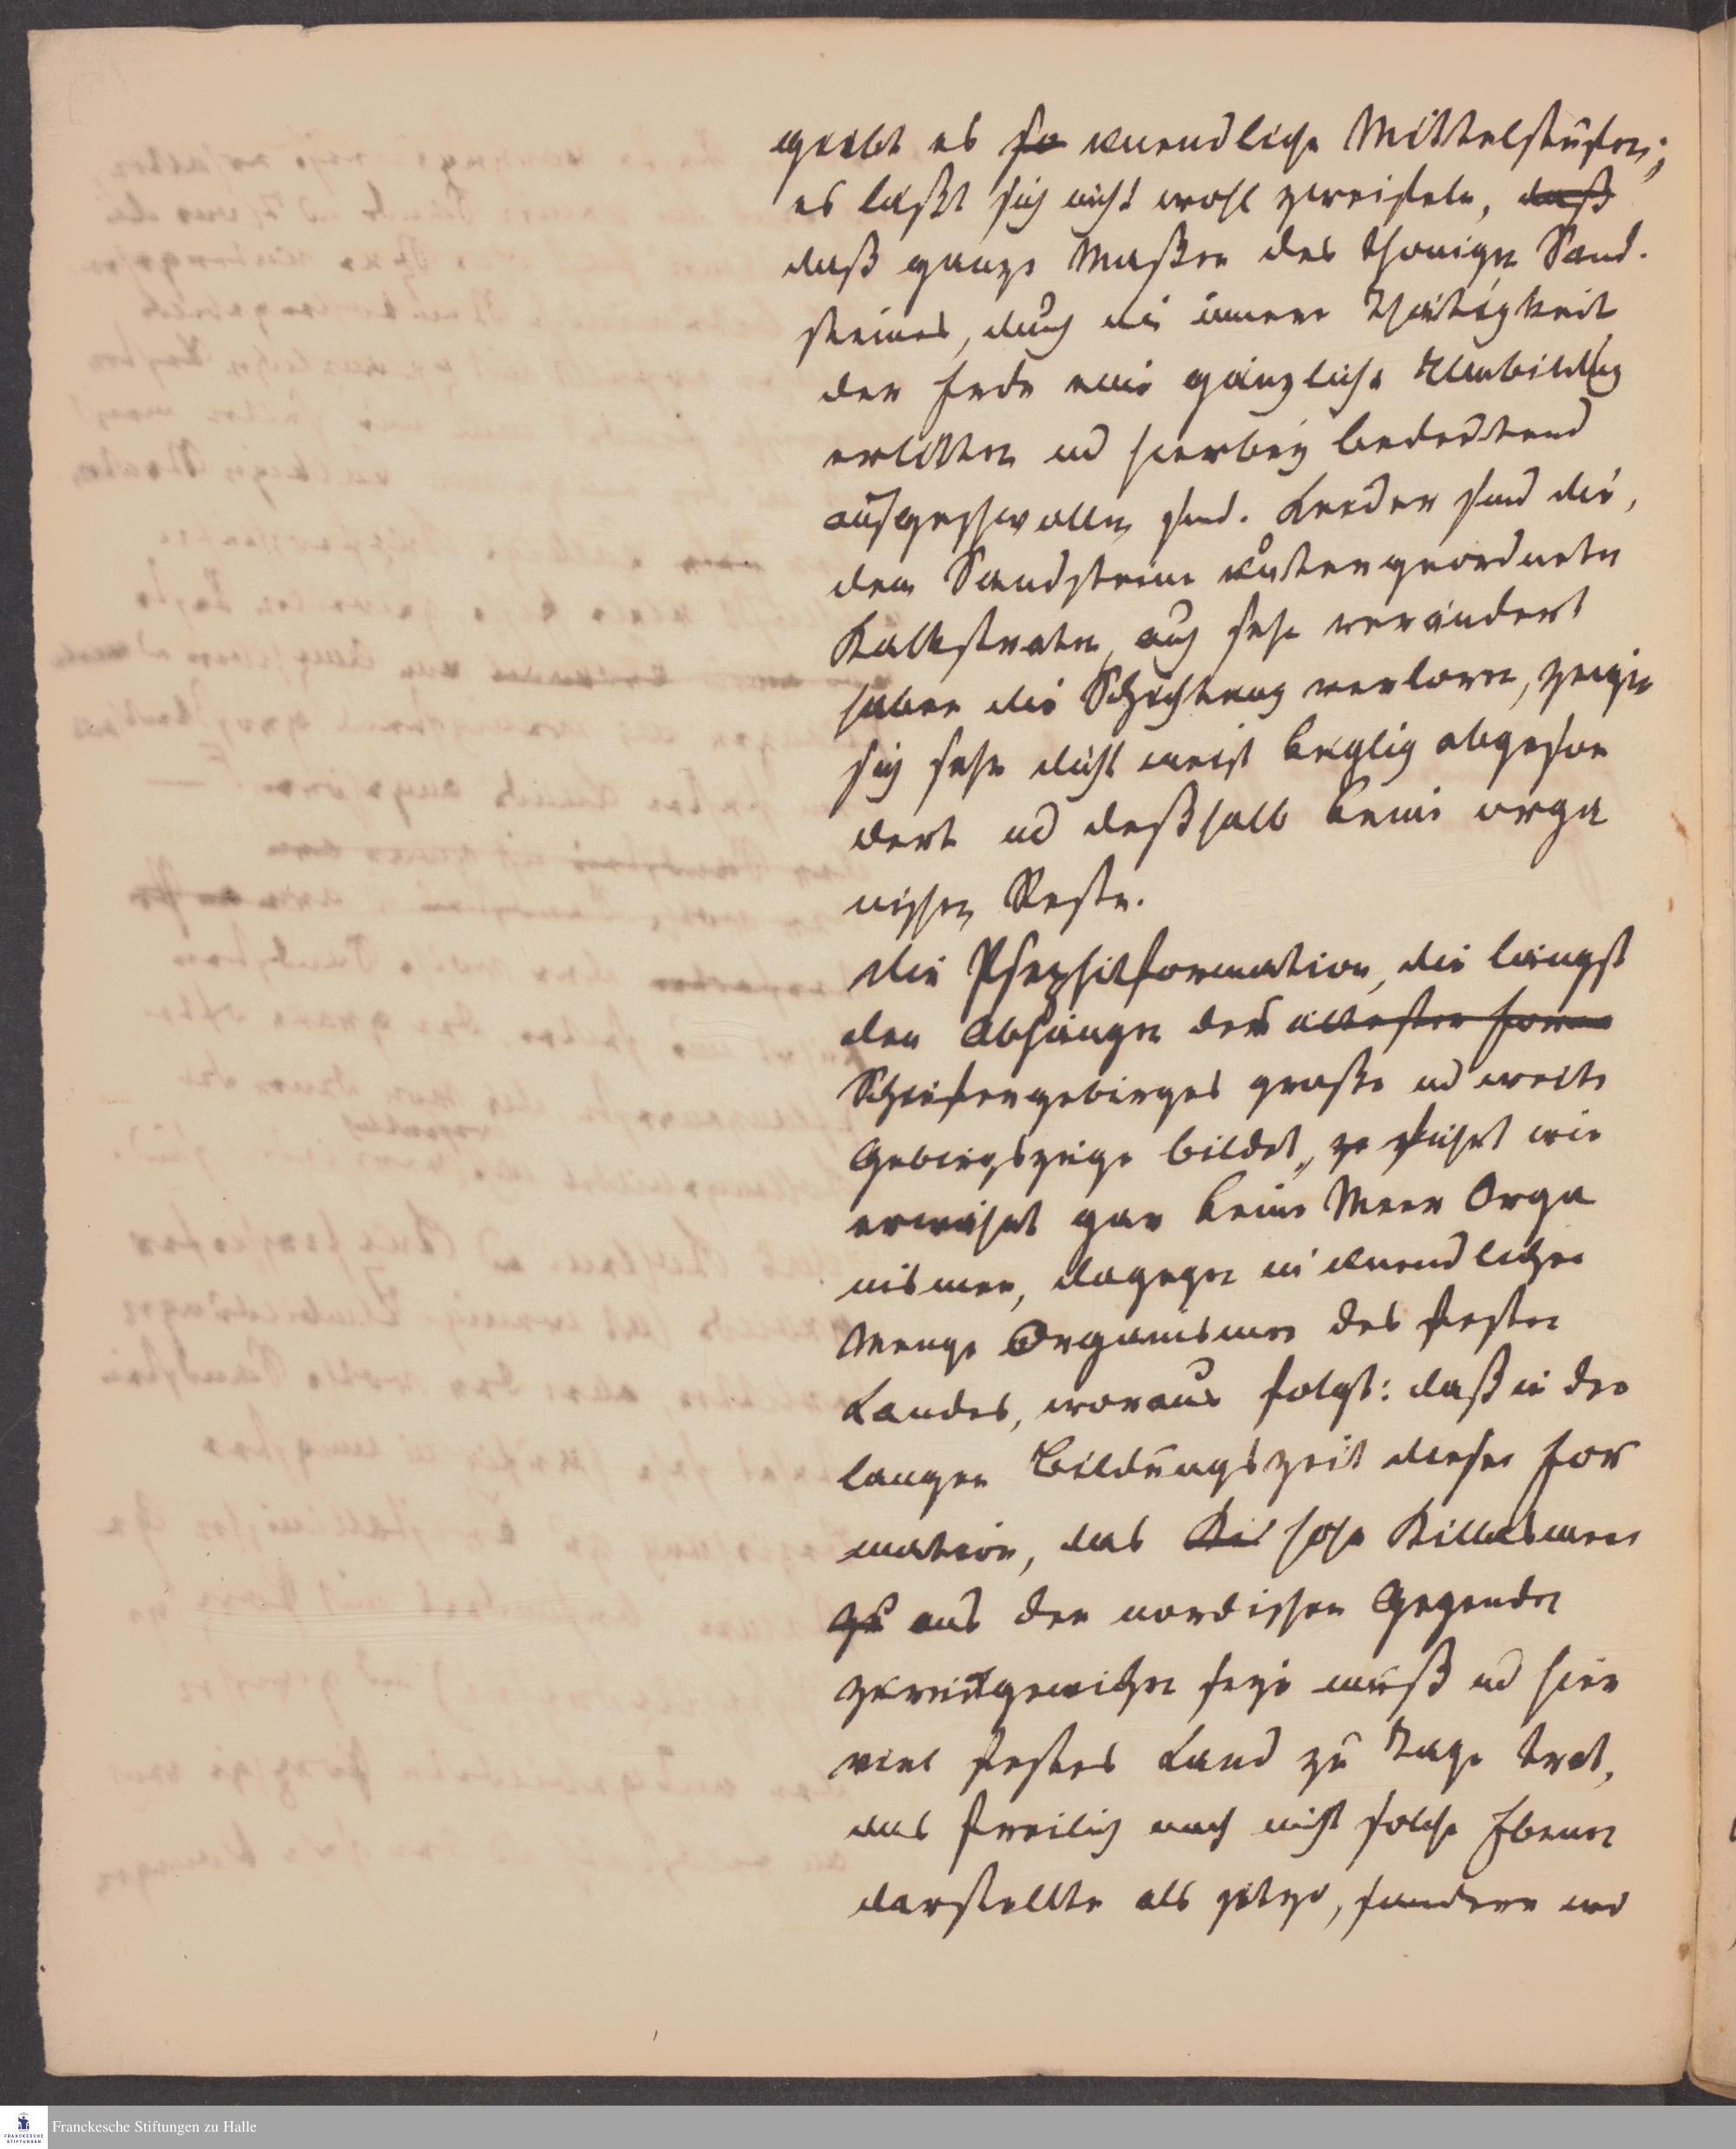 giebt es so unendliche Mittelstufen;
es laßt sich nicht wohl zweifeln, daß
daß ganze Maßen des thonigen Sand-
steines, durch die innere Thätigkeit
der Erde eine gänzliche Umbildung
erlitten und hierbey bedeutend
aufgeschwollen sind. Leider sind die,
dem Sandsteine untergeordneten
Kalkstraten, auch sehr verändert
haben die Schichtung verloren, zeigen
sich sehr dicht meist kuglig abgeson
dert und deßhalb keine orga
nischen Reste.
Die Psephitformation, die längst
den Abhängen des ältesten Form
Schiefergebirges große und weite
Gebirgszüge bildet, führt wie
erwähnt gar keine Meer Orga
nismen, dagegen in unendlicher
Menge Organismen des festen
Landes, woraus folgt: daß in der
langen Bildungszeit dieser For
mation, das hohe
aus den nordischen Gegenden
zurückgewichen seyn muß und hier
viel festes Land zu Tage trat,
das freilich noch nicht solche Ebenen
darstellte als jetzo, sondern
Franckesche Stiftungen zu Halle
FRANCKESCHE
STIFTUNGEN